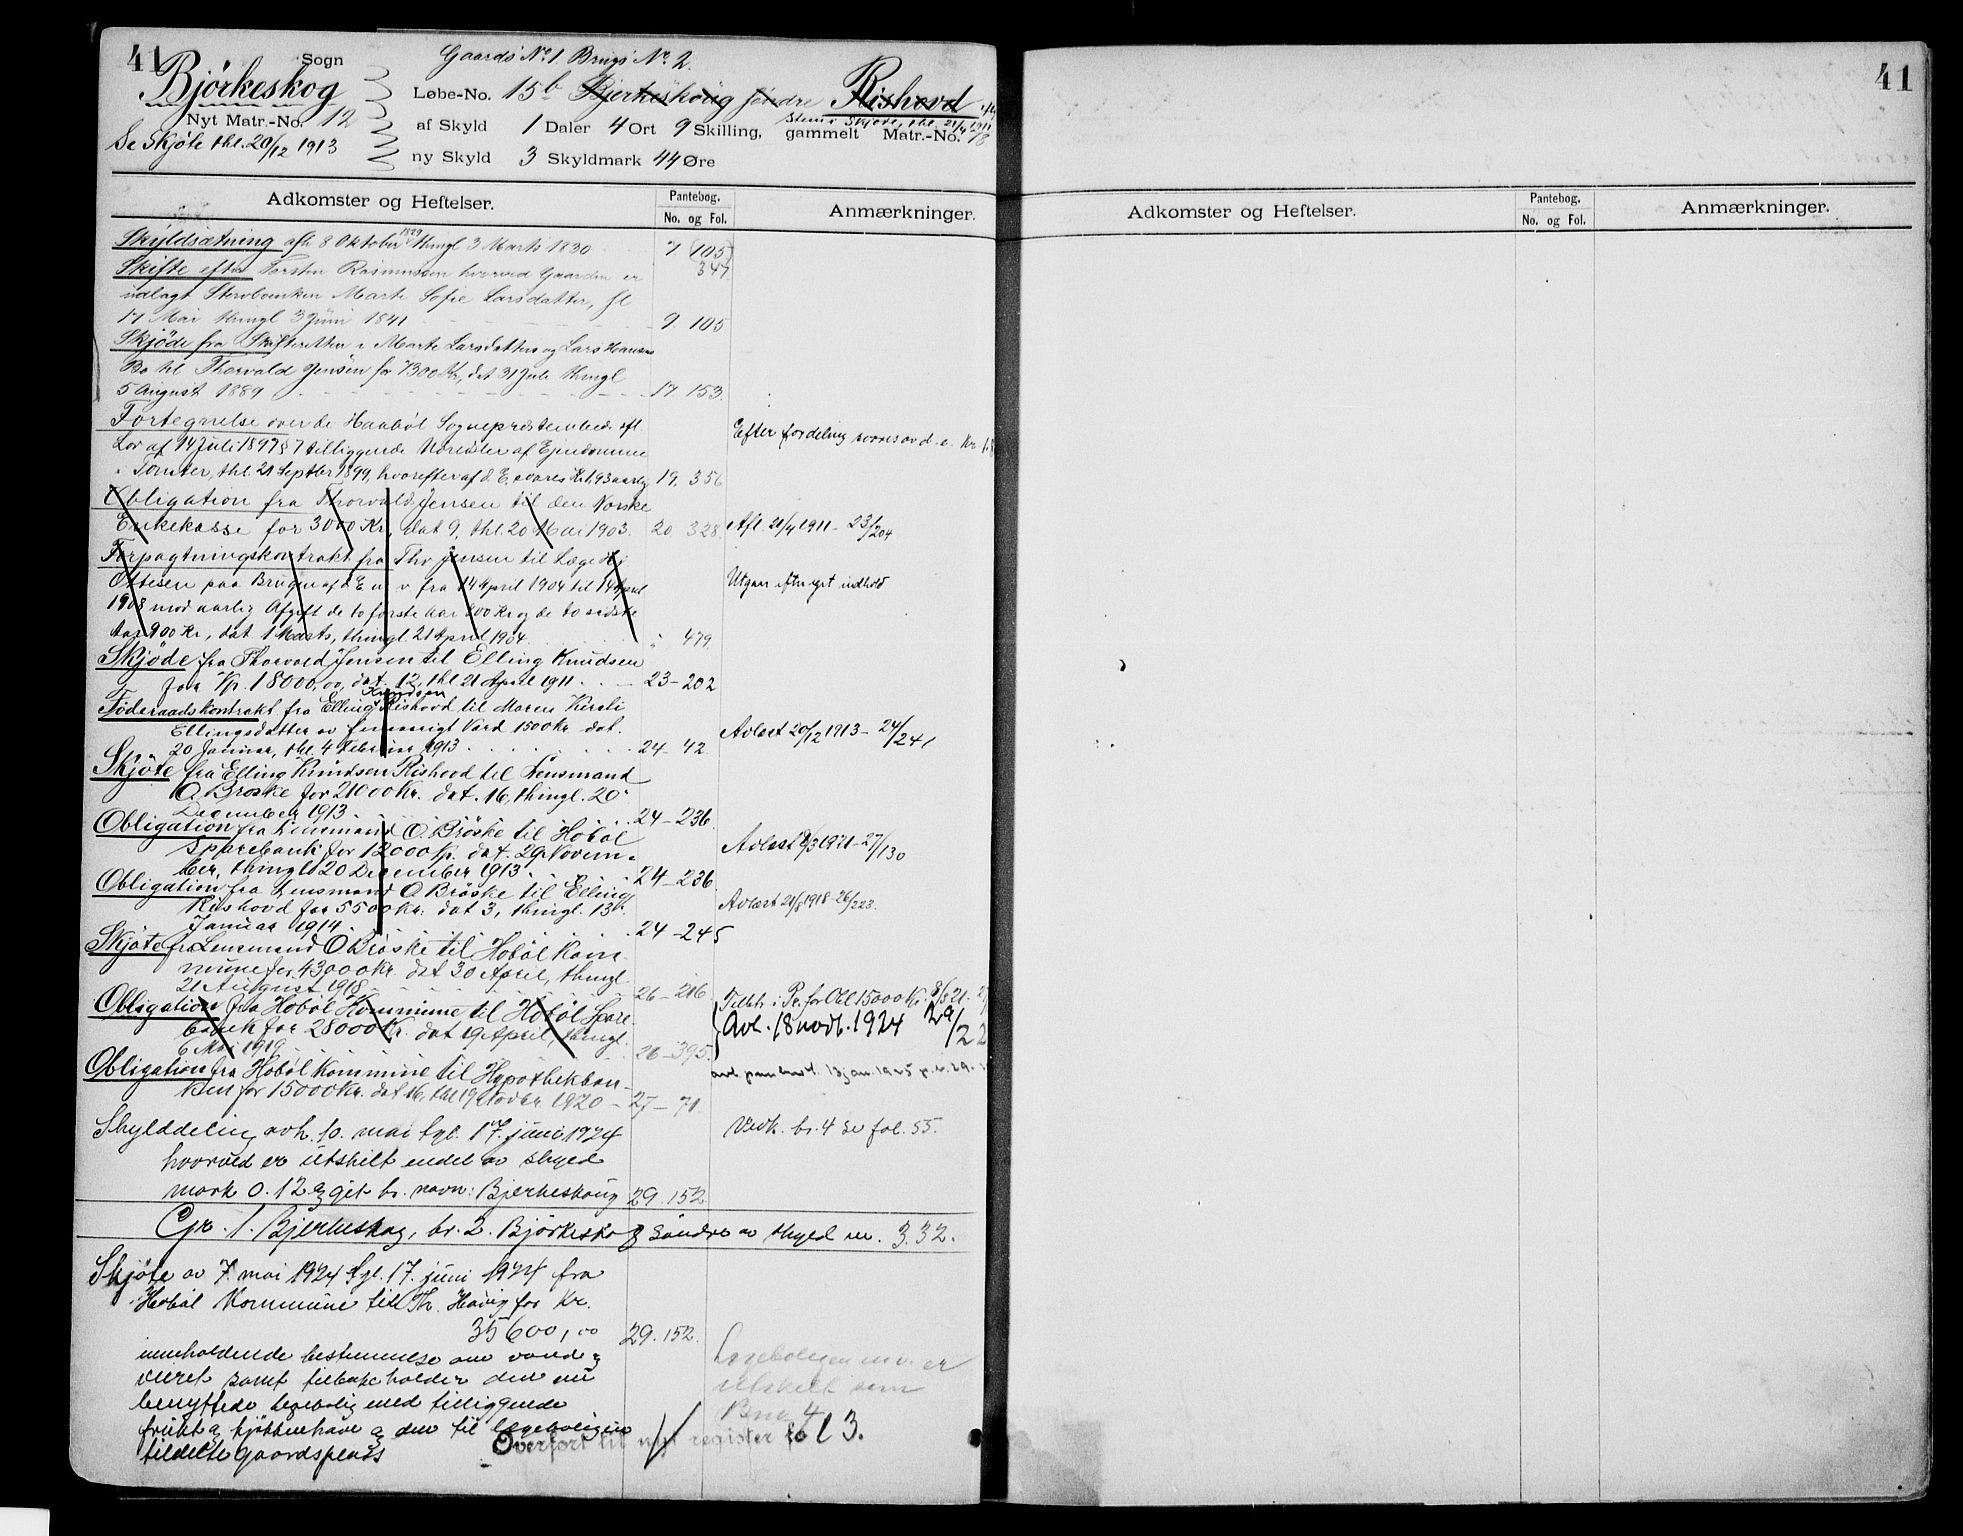 41
Sogn
Gaards No 1 Brugs No 2.
Bjórkeskog
Løbe-No. 15b Bjerkeskoug søndre Rishovd
Nyt Matr.-No. 12
af Skyld 1 Daler 4 Ort 9 Skilling, gammelt Matr.-No. 78
Se Skjøte thl. 20/12 1913
ny Skyld 3 Skyldmark 44 Øre
Adkomster og Heftelser.
Pantebog.
No. og Fol.
Anmærkninger.
Skyldsætning afh 8 Oktober 1829 thingl 3 Marts 1830 7 105
Skifte efter Torsten Rasmussen hvorved Gaarden er 347
udlagt Stervboenken Marte Sofie Larsdatter, fl
17 Mai thingl 3 Juni 1841 9. 105
Skjöde fra Skifteretten i Marte Larsdatters og Lars Hansens
Bo til Thorvald Jensen for 7300 Kr, dat 31 Juli thingl
5 August 1889 17. 153.
Fortegnelse over de Haabøl Sognepræsteembede efl.
Lov af 14 Juli 1897 § 7 tilliggende Udreisler af Ejendomme
i Tomter, thl. 21 Septber 1899, hvorefter af d. E. svares Kr 1,93 aarlig 19. 356
Efter fordeling svares av d. e. Kr 1.8
Obligation fra Thorvald Jensen til den Norske
Enkekasse for 3000 Kr, dat 9, thl. 20 Mai 1903. 20 328. Afl. 21/4 1911 - 23/204
Forpagtningskontrakt fra Thv Jensen til Læge Hj
Ottesen paa Brugen af d. E. u v. fra 14 April 1904 til 14 April Utgaar efter eget indhold
1908 mod aarlig Afgift de to første Aar 800 Kr og de to sidste
Aar 900 Kr, dat 1 Marts, thingl. 21 April 1904. " 479.
Skjöde fra Thorvald Jensen til Elling Knudsen
for Kr. 18000,00, dat. 12, thl 21 April 1911. 23-202
Knudsen
Føderaadskontrakt fra Elling Rishovd til Maren Kirsti
Ellingsdatter av femaarigt Værd 1500 Kr. dat.
20 Januar, thl. 4 Februar 1913 24-42. Avlæst 20/12 1913 - 24/241
Skjøte fra Elling Knudsen Rishovd til Lensmand
O. Brøske for 21000 Kr. dat. 16, thingl. 20
December 1913. 24-236.
Obligation fra Lensmand O. Brøske til Hobøl
Sparebank for 12000 Kr. dat. 29 Novem- Avlæst 8/3 1921 - 27/130
ber, thingl 20 December 1913. 24-236.
Obligation fra Lensmand O Brøske til Elling
Rishovd for 5500 Kr. dat 3, thingl. 13 Avlæst 21/8 1918-26/223.
Januar 1914. 24-245
Skjøte fra Lensmand O Brøske til Hobøl Kom-
mune for 43000 Kr. dat 30 April, thingl
21 August 1918 26-216
Obligation fra Hobøl Kommune til Hobøl Spare- Tilbtr. i Pr. for Obl 15000 Kr. 8/3 21.
bank for 28000 Kr. dat 19 April, thingl. Avl. 18 novb. 1924 29/2
6 Mai 1919 26-395.
Obligation fra Hobøl Kommune til Hypothekban-
ken for 15000 Kr. dat 16, thl 19 Octobr. 1920 - 27-71.
Skylddeling avh. 10. mai tgl. 17. juni 1924 Vedk. br. 4 se fol. 55.
hvorved er utskilt endel av skyld
mark 0.12 og git br. navn: Bjerkeskoug 29.152.
Gr. 1. Bjerkeskog, br. 2. Björkeskog Søndre av skyld m. 3.32.
Skjøte av 7 mai 1924 tgl. 17. juni 1924 fra
Hobøl Kommune til Th. Havig for Kr.
35600,00 29.152.
inneholdende bestemmelse om vand og
veiret samt tilbakeholder den nu
benyttede lægebolig med tilliggende
frukt og kjøkkenhave og den til lægeboligen
tildelte gaardsplass
Lægeboligen m.v. er
utskilt som
Bno 4
Overført til nytt register fo 13.
41
Adkomster og Heftelser.
Pantebog.
No. og Fol.
Anmærkninger.